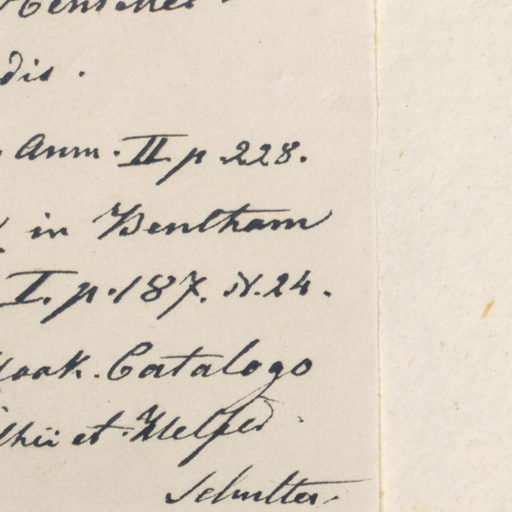 dis.
Ann. II. p. 228.
in Bentham
I. p. 187. N. 24.
Hook. Catalogo
thii et Helfer
Schulter.